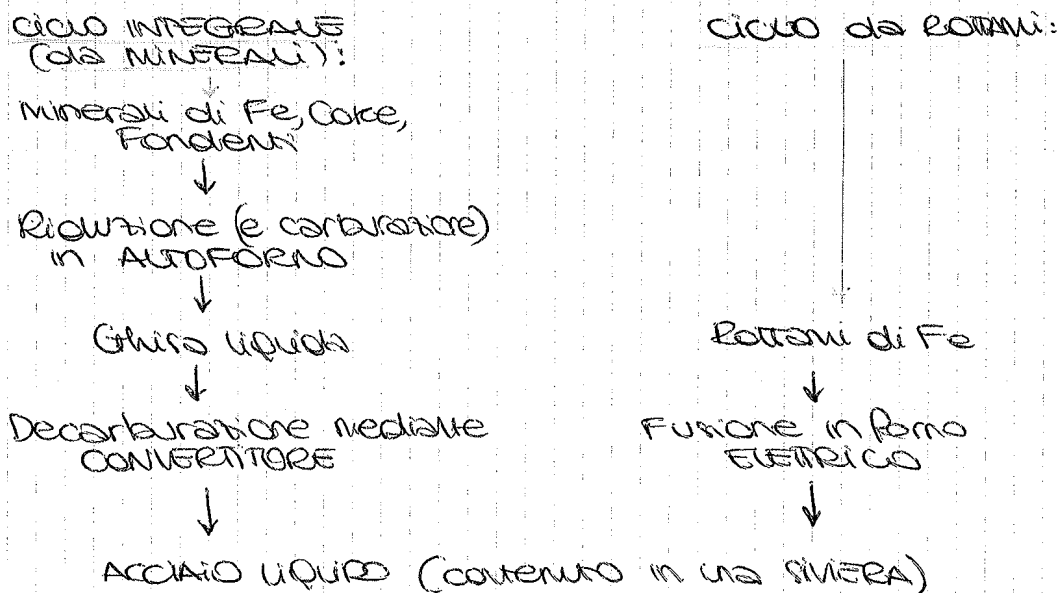 CICLO INTEGRALE
(da MINERALI):
Minerali di Fe, Coke,
Fondenti
↓
Riduzione (e carburazione)
in ALTOFORNO
↓
Ghisa liquida
↓
Decarburazione mediante
CONVERTITORE
↓
CICLO da ROTTAMI:
↓
Rottami di Fe
↓
Fusione in forno
ELETTRICO
↓
ACCIAIO LIQUIDO (contenuto in una SIVIERA)